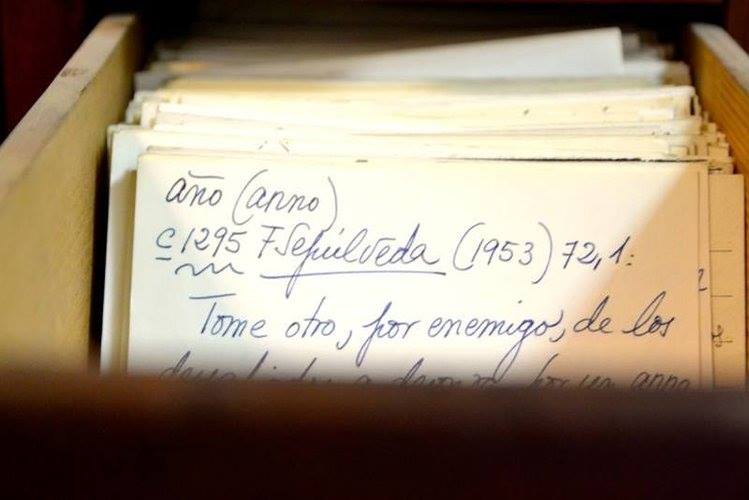 año (anno)
c1295 FSepúlveda (1953) 72,1:
Tome otro, por enemigo, de los
por un anno